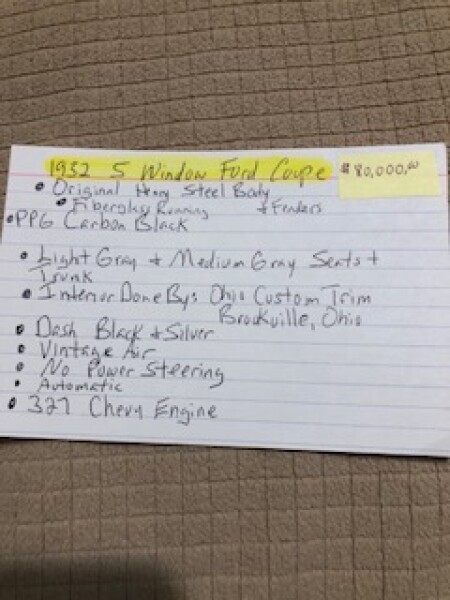 1932 5 Window Ford Coupe
$80,000.00
• Original Henry Steel Body
• Fiberglass Running & Fenders
• PPG Carbon Black
• Light Gray & Medium Gray Seats +
Trunk
• Interior Done By: Ohio Custom Trim
Brookville, Ohio
• Dash Black & Silver
• Vintage Air
• No Power Steering
• Automatic
• 327 Chevy Engine